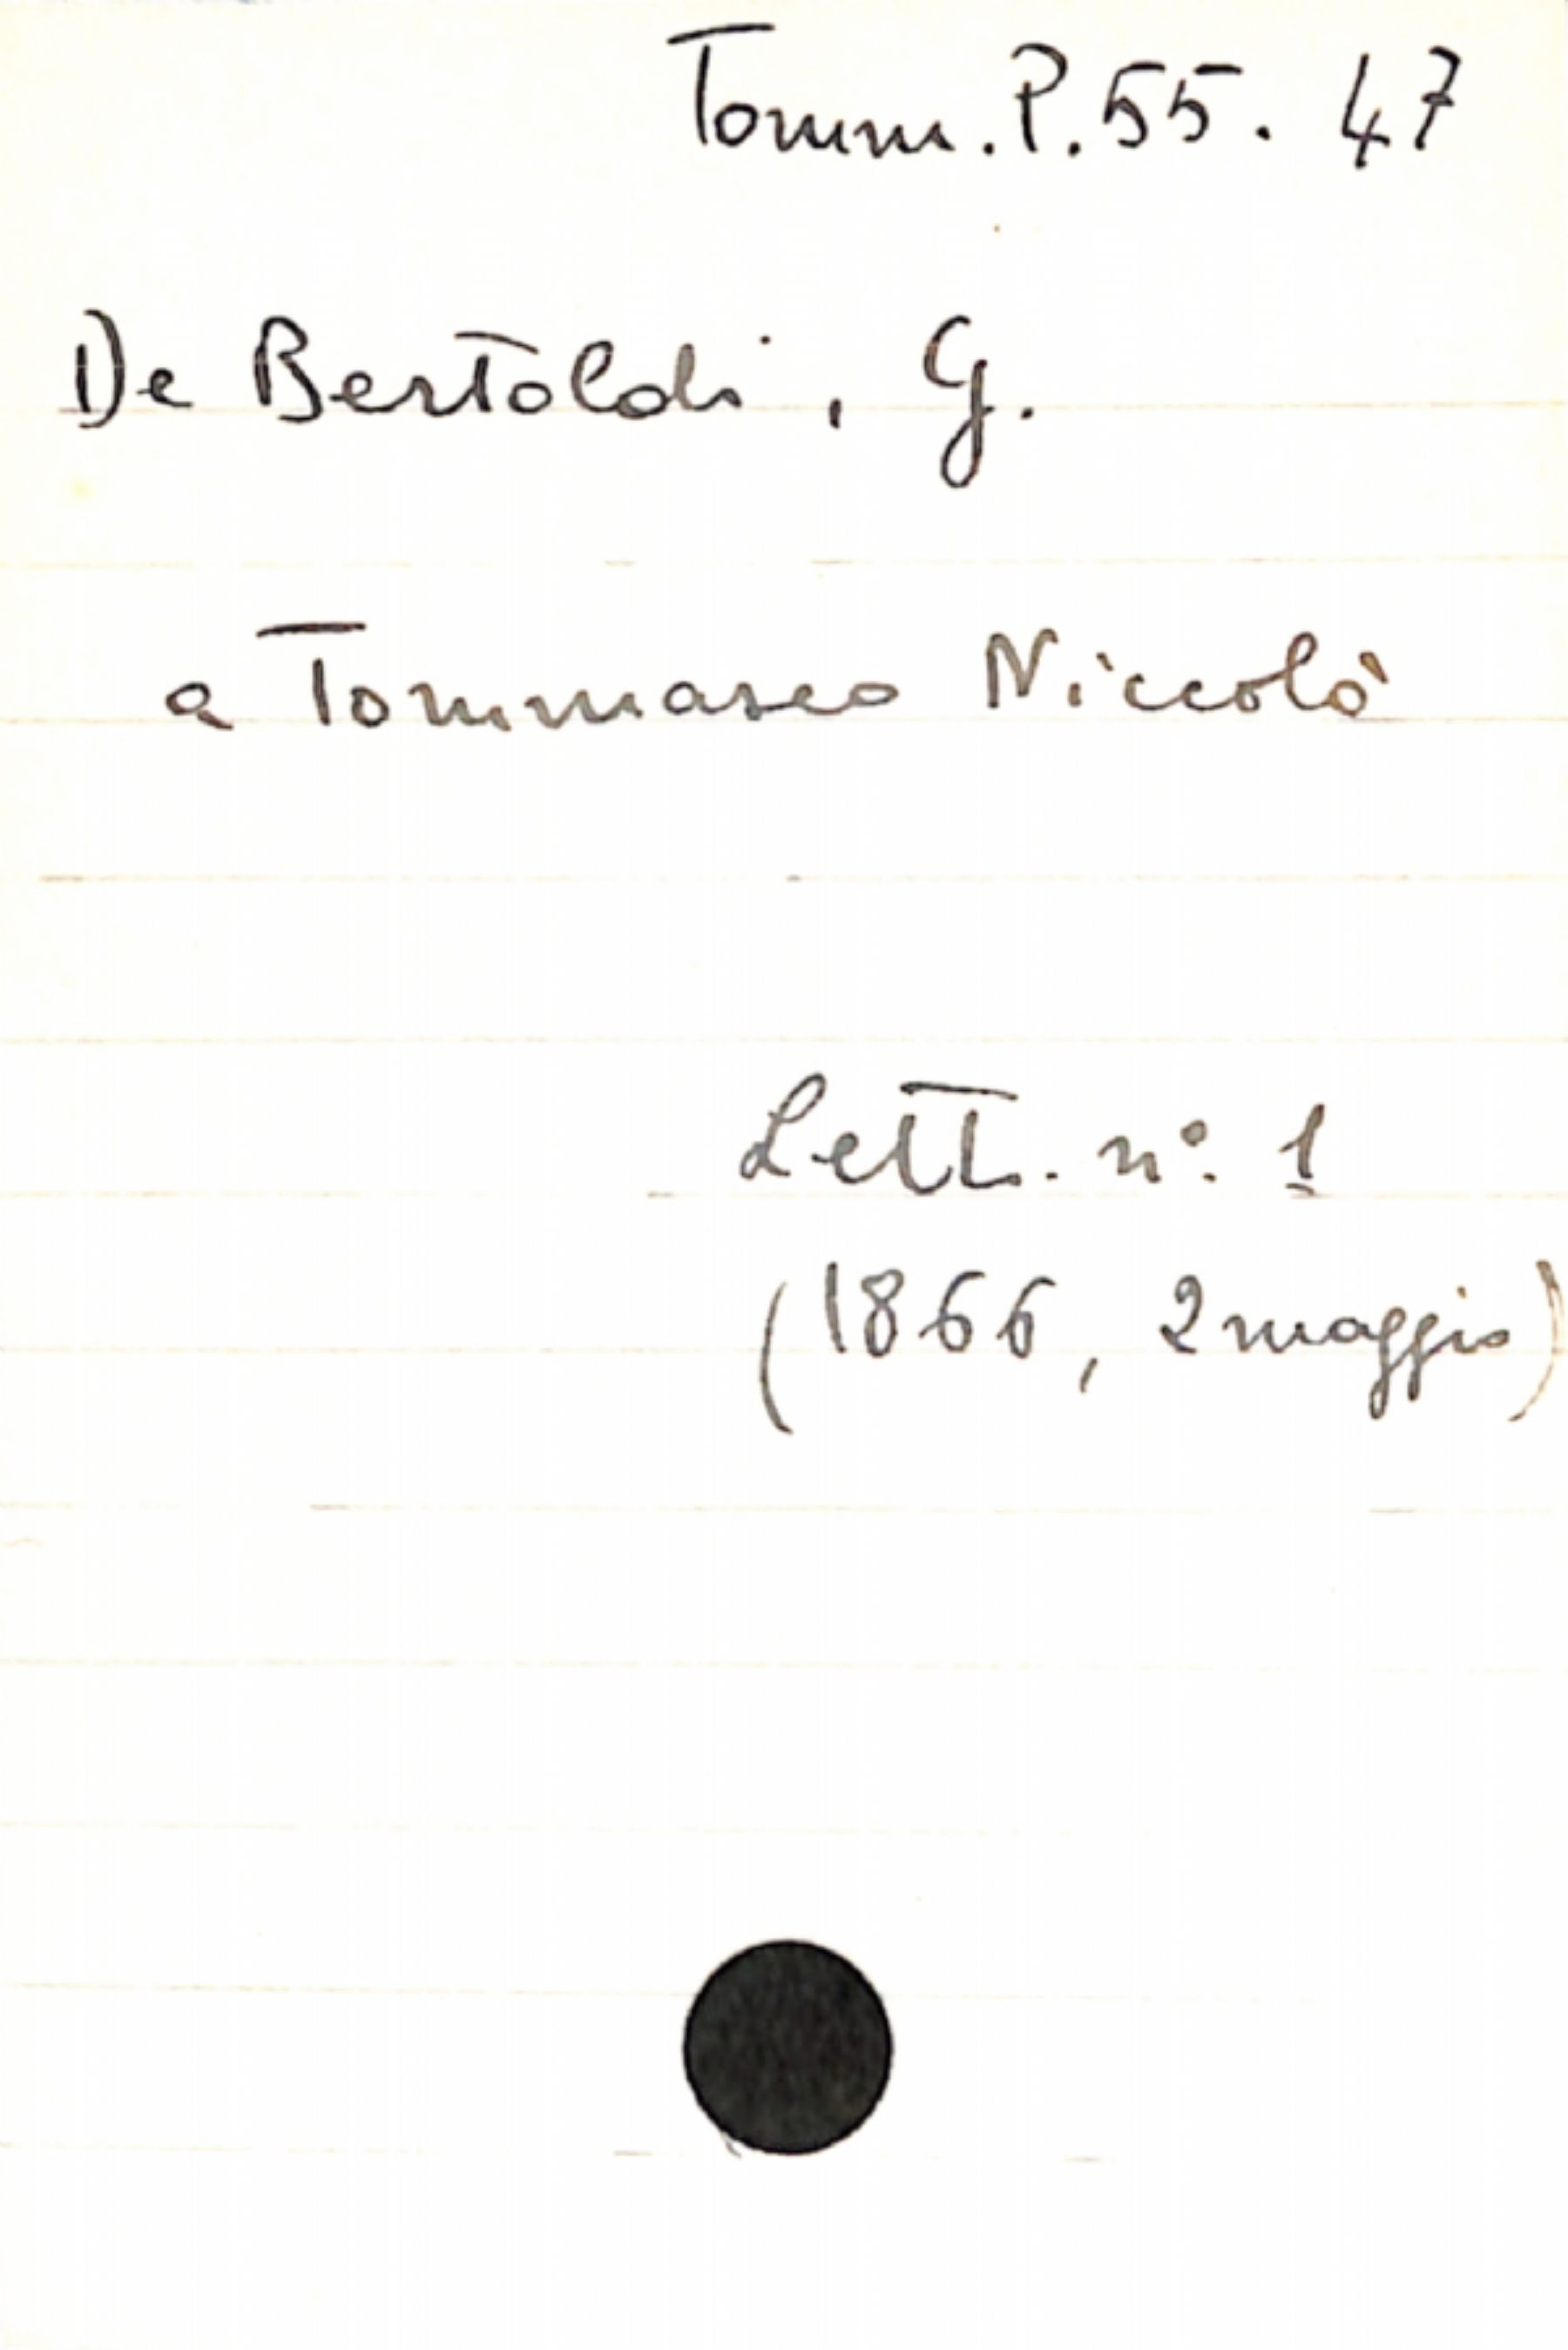 Tomm. P. 55. 47
De Bertoldi, G.
a Tommaseo Niccolò
Lett. n°. 1
(1866, 2 maggio)